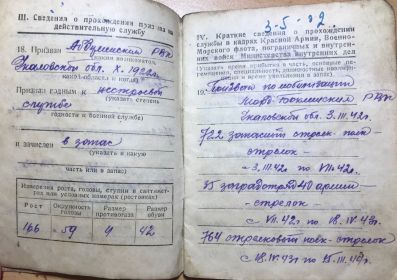 III. Сведения о прохождении призыва на
действительную службу
18. Призван Абдулинский РВК
(каким военкоматом
Чкаловской обл. X. 1922г.
какая область и когда)
Признан годным к нестроевой
(указать степень
службе
годности к военной службе)
и зачислен в запас
(указать в какую
часть или в запас)
Измерения роста, головы, ступни в сантимет-
рах или условных номерах (ростовках)
Рост
Окружность
головы
Размер
противогаза
Размер
обуви
166
59
4
42
3-5-92
IV. Краткие сведения о прохождении
службы в кадрах Красной Армии, Военно-
Морского флота, пограничных и внутрен-
них войск Министерства внутренних дел
19. Призван по мобилизации
РВК
Чкаловской обл. 3.III.42г.
722 запасной стрелк. полк
- стрелок -
с 3.III.42г по VII.42г.
35 заградотряд 40 армии
- стрелок -
с VII.42г по 18.IV.43г.
764 стрелковый полк - стрелок
с 18.IV.43г по